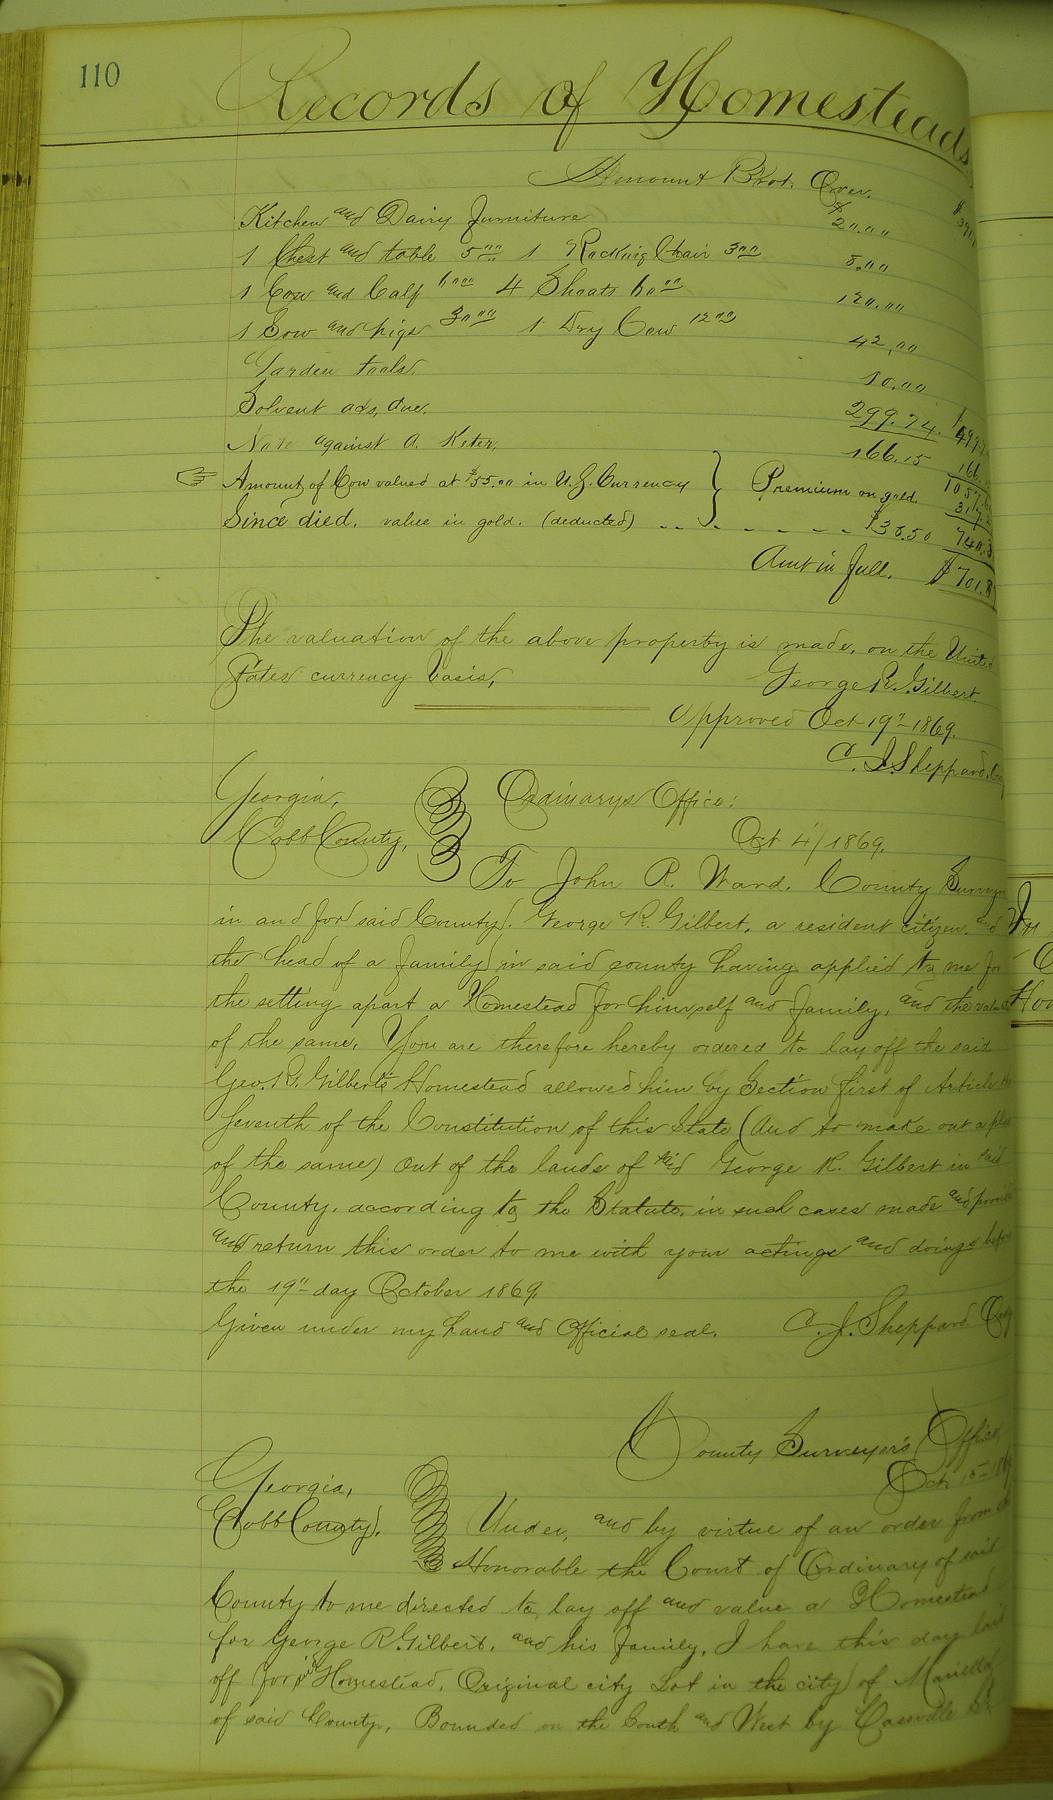 110
Records of Homesteads
Amount Brot. Over.
Kitchen and Dairy furniture $20.00
1 Chest and table 5.00 1 Rocking Chair 3.00 8.00
1 Cow and Calf 60.00 4 Shoats 60.00 120.00
1 Sow and pigs 30.00 1 Dry Cow 12.00 42.00
Garden tools. 10.00
Solvent acs, due. 299.74.
Note against A. 166.15
Amount, of Cow valued at $55.00 in U.S. Currency } Premium on gold.
Since died. value in gold. (deducted) $38.50
Amt in full. $701.8
The valuation of the above property is made, on the United
States currency basis,
George R. Gilbert.
Approved Oct 19th 1869.
C. J. Sheppard,
Georgia, Ordinarys Office:
Cobb County, Oct 4"/1869.
To John R. Ward. County Surveyor
in and for said County. George R. Gilbert, a resident citizen, and
the head of a family in said county having applied to me for
the setting apart a Homestead for himself and family, and the
of the same, You are therefore hereby ordered to lay off the said
Geo. R. Gilbert's Homestead allowed him by Section first of Article
Seventh of the Constitution of this State (And to make out a
of the same) out of the lands of said George R. Gilbert in said
County, according to the Statute, in such cases made and
and return this order to me with your actings and doings before
the 19" day October 1869.
Given under my hand and official seal. C. J. Sheppard
County Surveyor's Office,
Georgia, Oct 15th
Cobb County. Under, and by virtue of an order from
Honorable the Court of Ordinary of said
County to me directed to, lay off and value a Homestead
for George R. Gilbert, and his family, I have this day laid
off for his Homestead, Original city Lot in the city of Marietta
of said County, Bounded on the South and West by Cassville